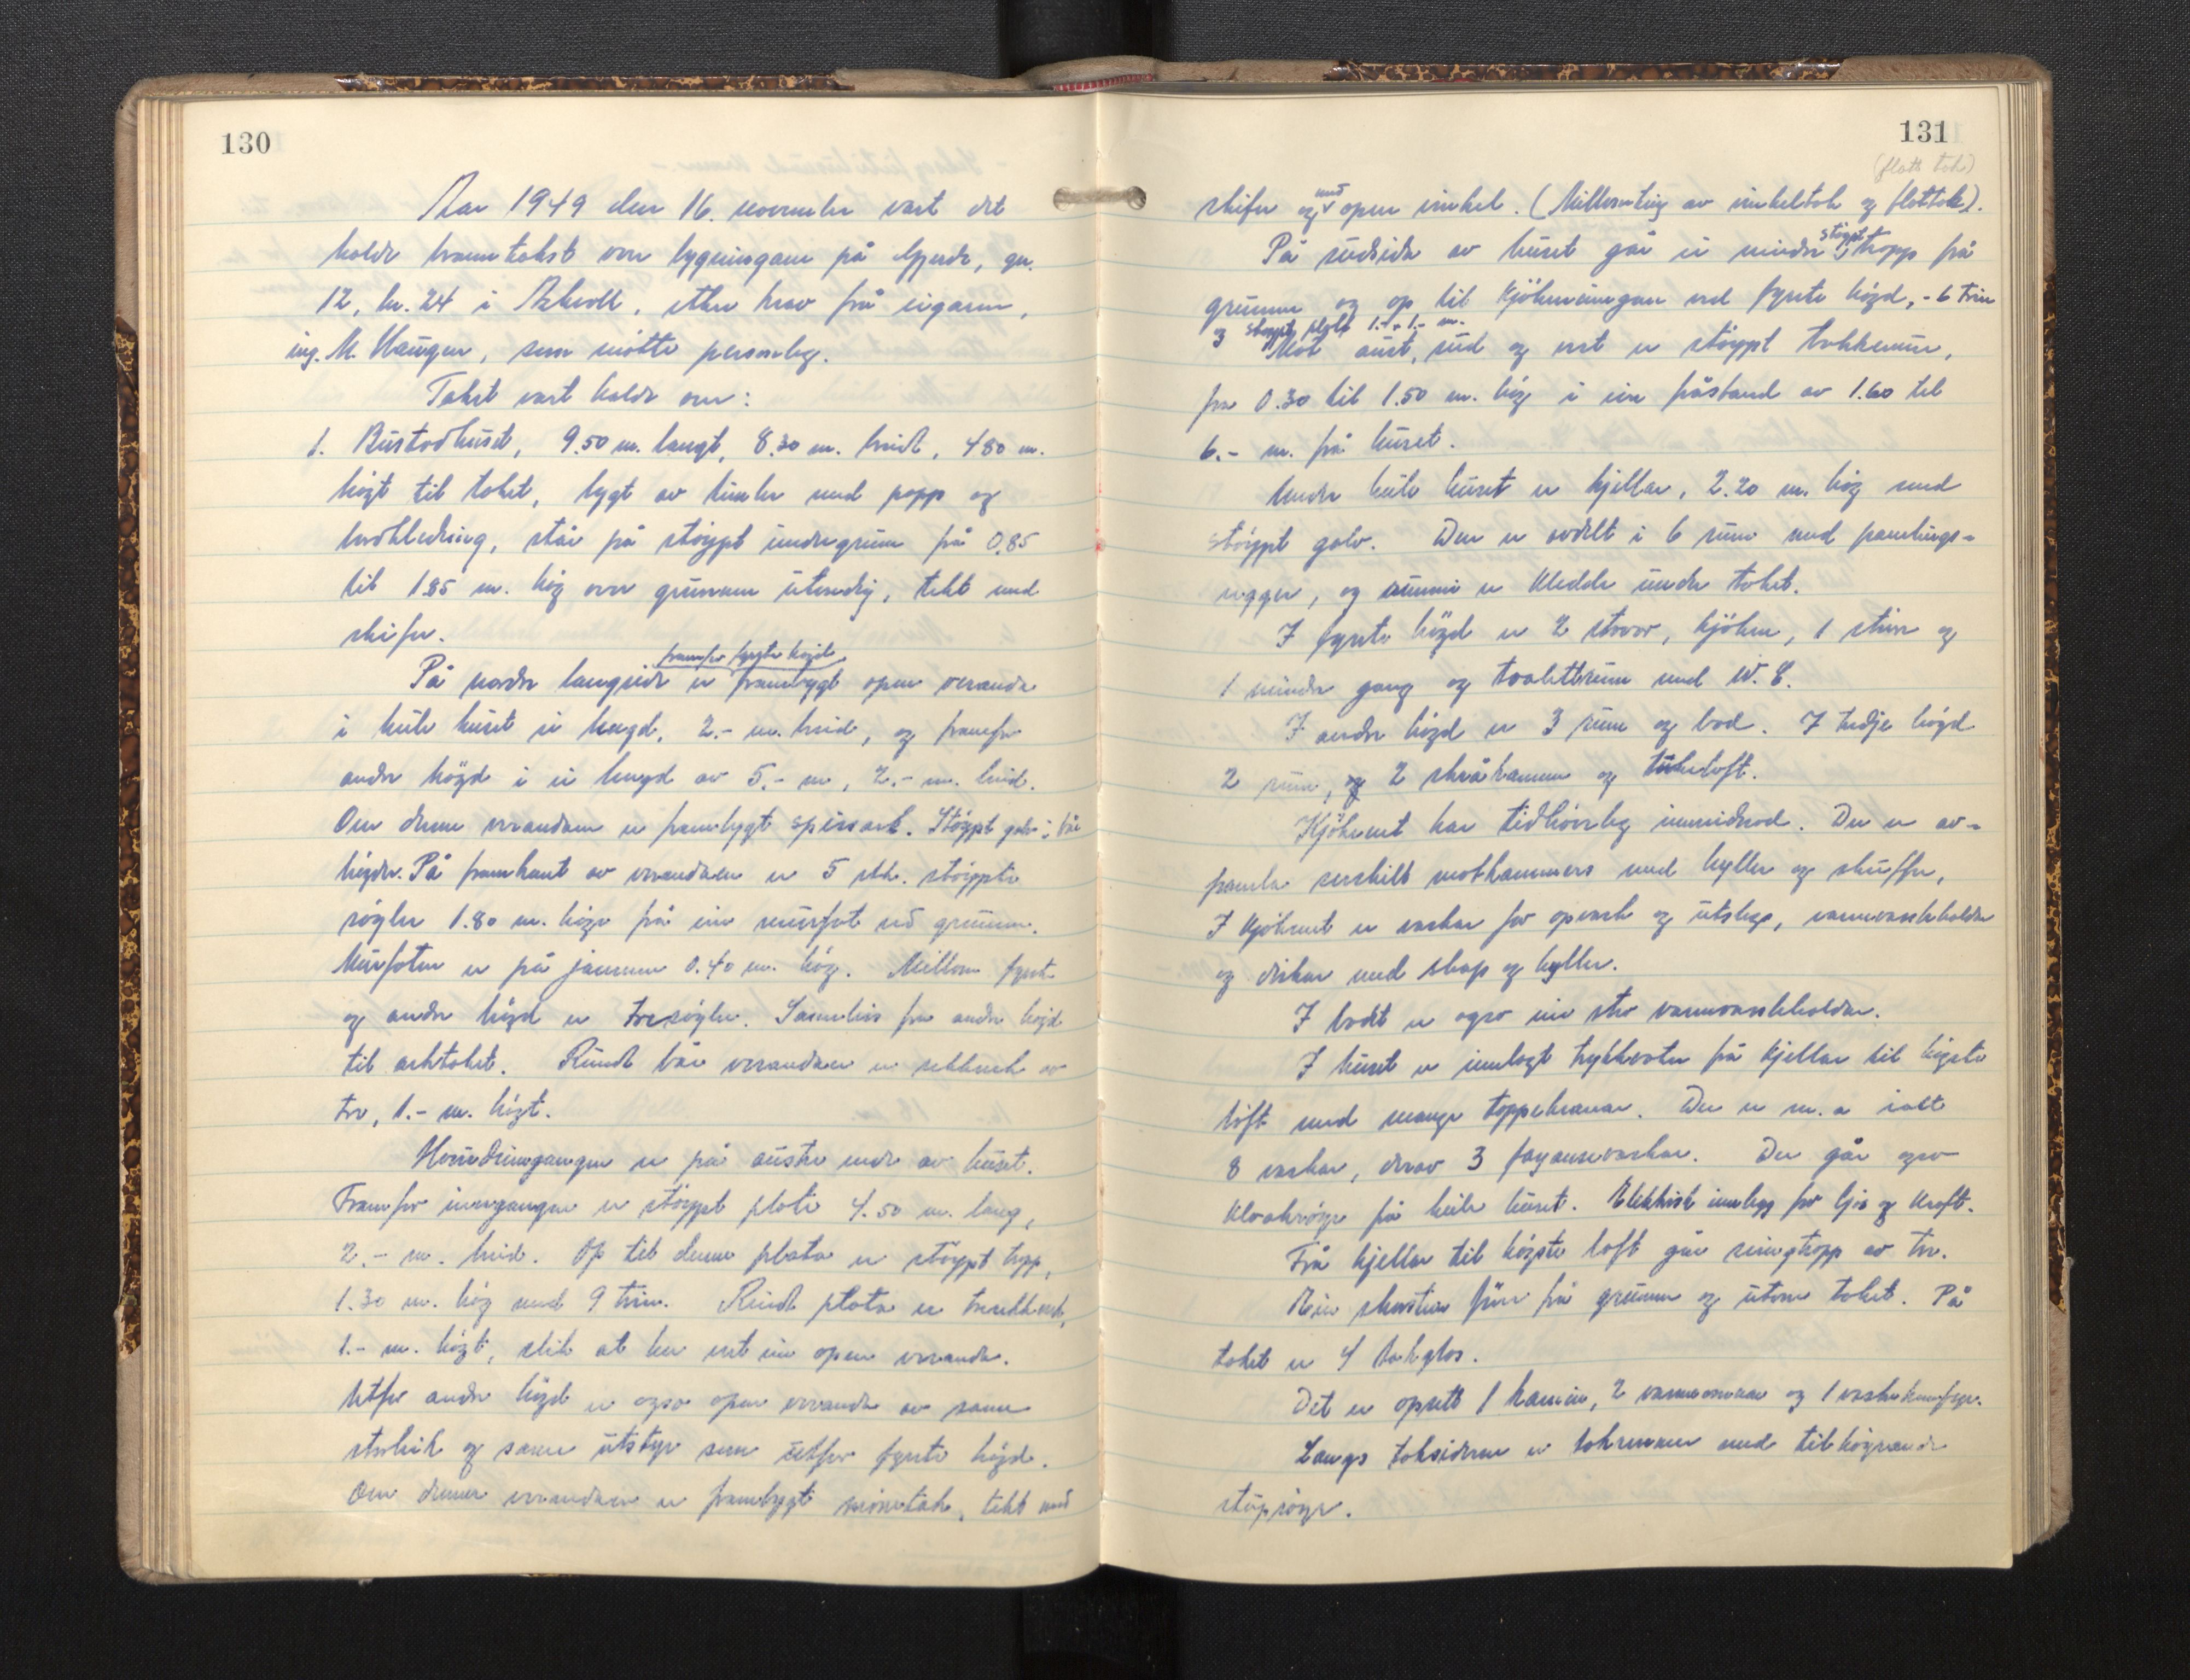 130
Aar 1949 den 16. november vart det
halde branntakst over bygningane på Gjerde, gn.
12, bn. 24 i Askvoll, etter krav frå eigaren,
ing. M. Haugen, som møtte personleg.
Takst vart halde over:
1. Bustadhuset, 9.50 m. langt, 8.30 m. breidt, 4.80 m.
högt til taket, bygt av timber med papp og
bordkledning, står på stöypt undergrunn frå 0.85
til 1.85 m. høg over grunnen utvendig, tekt med
skifer.
framfor fyrste högd
På nordre langside er frambygt open veranda
i heile huset si lengd, 2.- m. breid, og framfor
andre högd i ei lengd av 5.- m, 2.- m. breid.
Over denne verandaen er frambygt spissark. Stöypt golv i båe
högder. På framkant av verandaen er 5 stk. stöypte
söyler 1.80 m. höge frå ein murfot ved grunnen.
Murfoten er på jamnen 0.40 m. høg. Millom fyrste
og andre högd er tresöyler. Sameleis fra andre högd
til arktaket. Rundt båe verandaer er rekkverk av
tre, 1.- m. högt.
Hovudinngangen er på austre ende av huset.
Framfor inngangen er stöypt plate 4.50 m. lang,
2.- m. breid. Op til denne plata er stöypt trapp,
1.30 m. høg med 9 trin. Rundt plata er trerekkverk,
1.- m. högt, slik at her vert ein open veranda.
Utfor andre högd er ogso open veranda av same
storleik og same utstyr som utfor fyrste högd.
Over denne verandaen er frambygt mönetak, tekt med
131
(flatt tak)
skifer og med open vinkel. (Millomting av vinkeltak og flattak).
På sudsida av huset går ei mindre stöypt trapp frå
grunnen og op til kjökeninngangen ved fyrste högd, - 6 trin
og stöypt plate 1.- x 1.- m.
Mot aust, sud og vest er stöypt trakkemur,
fra 0.30 til 1.50 m. høg i ein fråstand av 1.60 til
6.- m. frå huset.
Under heile huset er kjellar, 2.20 m. høg med
stöypt golv. Den er avdelt i 6 rum med panelings-
vegger, og rummi er kledde under taket.
I fyrste högd er 2 stover, kjöken, 1 större og
1 mindre gang og toalettrum med W.C.
I andre högd er 3 rum og bad. I tredje högd
2 rum, og 2 skråkammer og turkeloft.
Kjökenet har tidhöveleg innreidnad. Der er av-
panela serskilt matkammers med hyller og skuffer,
I kjökenet er vaskar for opvask og utslage, varmvassbehaldar
og diskar med skap og hyller.
I badet er ogso ein stor varmvassbehaldar.
I huset er innlagt trykkvatn frå kjellar til högste
loft med mange tappekranar. Der er m. a ialt
8 vaskar, derav 3 fayansevaskar. Der går ogso
kloakröyr frå heile huset. Elektrisk innlegg for ljos og kraft.
Frå kjellar til högste loft går svingtrapp av tre.
Ein skorstein förer frå grunnen og utover taket. På
taket er 4 takglas.
Det er opsett 1 kamin, 2 varmeomnar og 1 vaskekomfyr.
Langs taksidene er takrenner med tilhöyrande
stupröyr.